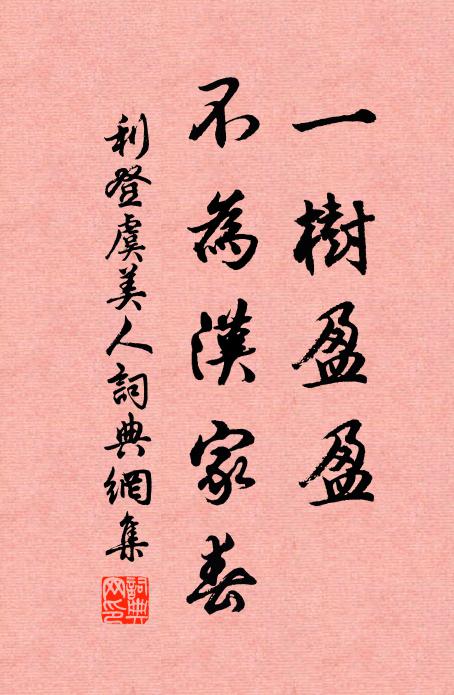 一樹盈盈
不為漢家春
利登虞美人詞典網集
詞典
網印